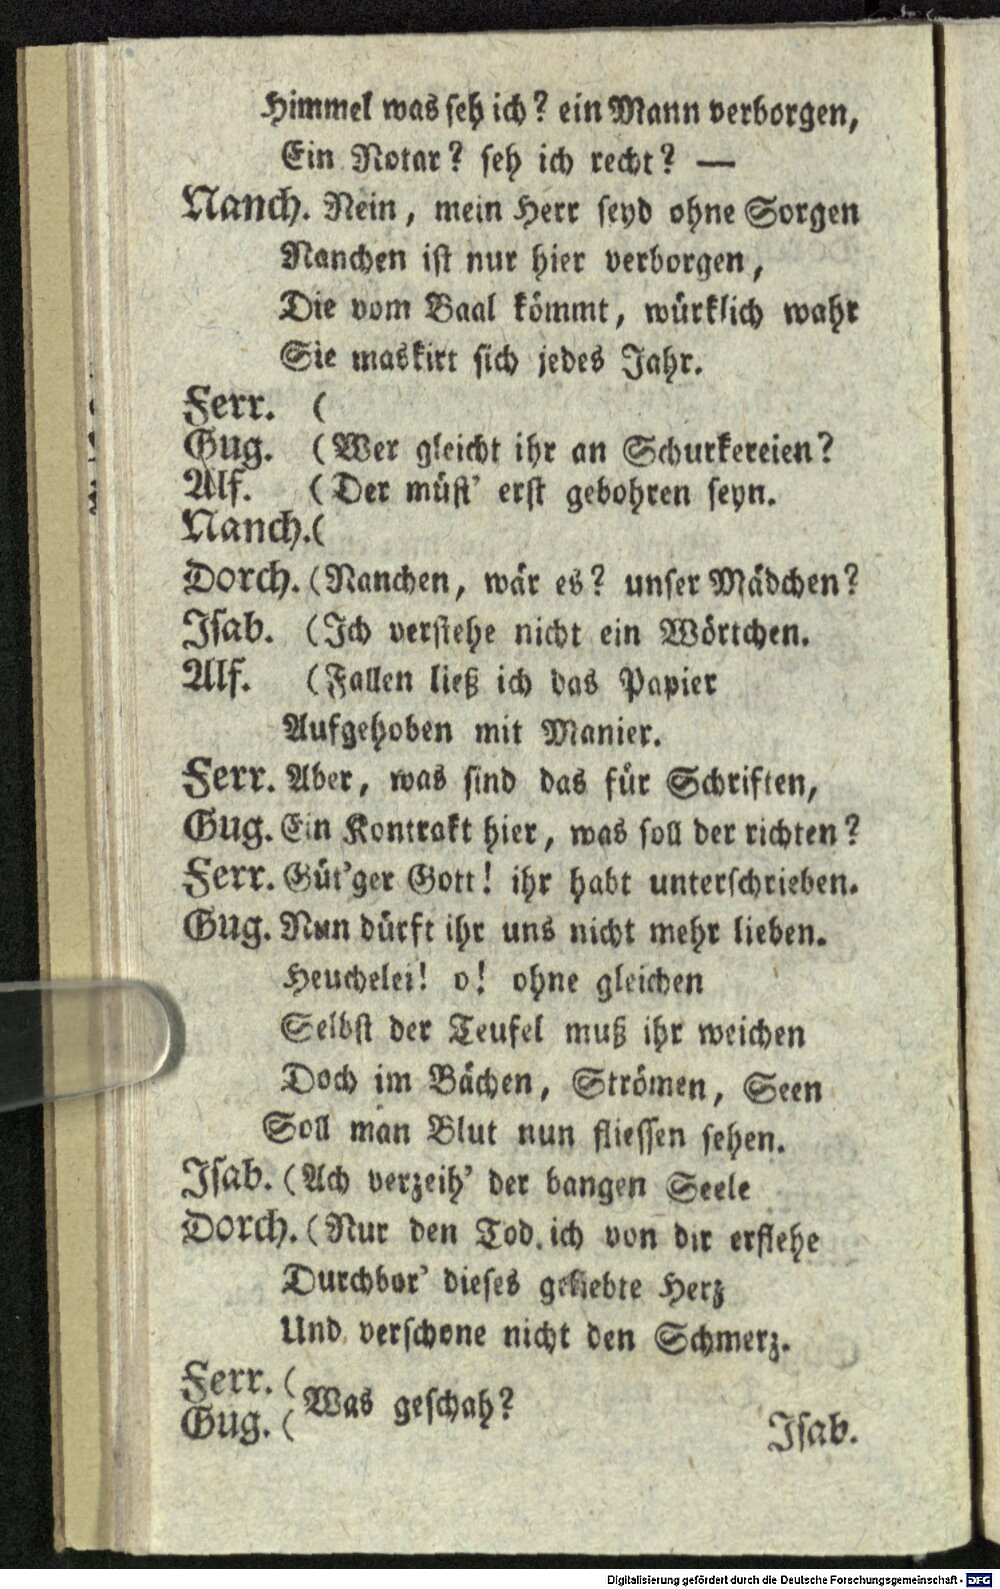 Himmel was seh ich? ein Mann verborgen,
Ein Notar? seh ich recht? —
Nanch. Nein, mein Herr seyd ohne Sorgen
Nanchen ist nur hier verborgen,
Die vom Baal kömmt, würklich wahr
Sie maskirt sich jedes Jahr.
Ferr. (
Gug. (Wer gleicht ihr an Schurkereien?
Alf. (Der müst' erst gebohren seyn.
Nanch.(
Dorch. (Nanchen, wär es? unser Mädchen?
Isab. (Ich verstehe nicht ein Wörtchen.
Alf. (Fallen ließ ich das Papier
Aufgehoben mit Manier.
Ferr. Aber, was sind das für Schriften,
Gug. Ein Kontrakt hier, was soll der richten?
Ferr. Güt'ger Gott! ihr habt unterschrieben.
Gug. Nun dürft ihr uns nicht mehr lieben.
Heuchelei! o! ohne gleichen
Selbst der Teufel muß ihr weichen
Doch im Bächen, Strömen, Seen
Soll man Blut nun fliessen sehen.
Isab. (Ach verzeih' der bangen Seele
Dorch. (Nur den Tod ich von dir erflehe
Durchbor' dieses geliebte Herz
Und verschone nicht den Schmerz.
Ferr. (
Gug. ( Was geschah?
Isab.
Digitalisierung gefördert durch die Deutsche Forschungsgemeinschaft - DFG